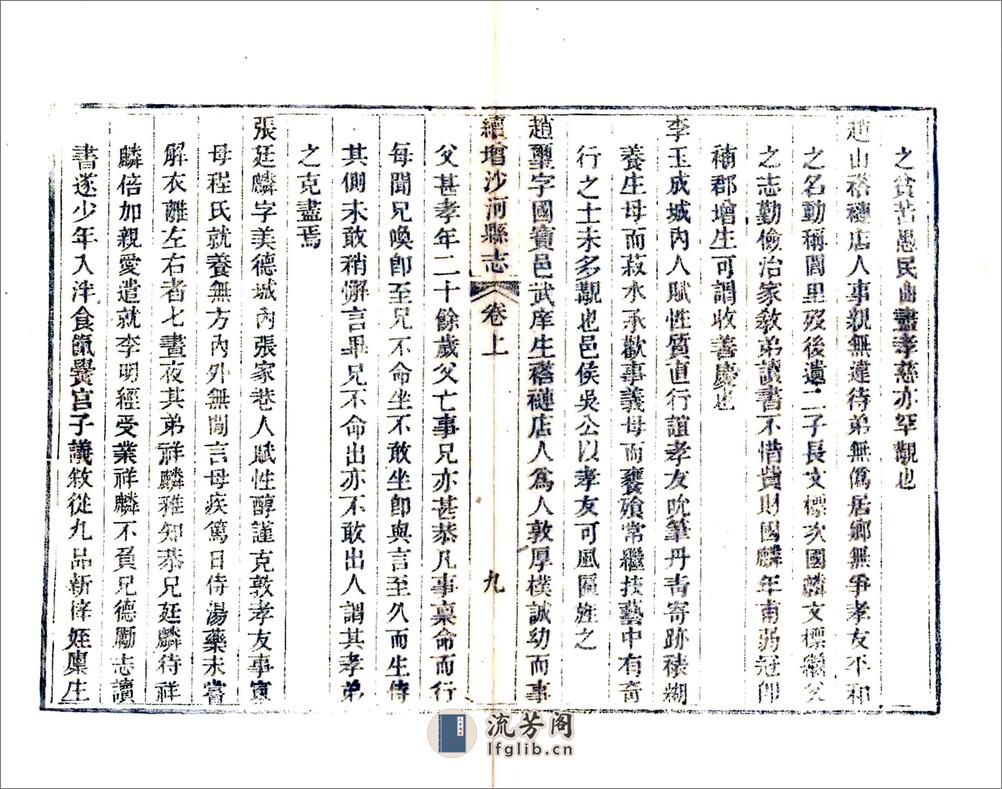 之貧苦愚民曲盡孝慈亦罕觀也
趙山褡褳店人事親無違待弟無僞居鄉無爭孝友不和
之名動稱閭里歿後遺二子長文標次國麟文標繼父
之志勤儉治家敎弟讀書不惜費財國麟年甫弱冠卽
補郡增生可謂收善慶也
李玉成城內人賦性質直行誼孝友吮筆丹靑寄跡裱糊
養生母而菽水承歡事義母而饔飱常繼技藝中有奇
行之士未多觀也邑侯吳公以孝友可風匾旌之
趙璽字國寶邑武庠生褡褳店人爲人敦厚樸誠幼而事
續增沙河縣志
卷上
九
父甚孝年二十餘歲父亡事兄亦甚恭凡事稟命而行
每聞兄喚卽至兄不命坐不敢坐卽與言至久而生侍
其側未敢稍懈言畢兄不命出亦不敢出人謂其孝弟
之克盡焉
張廷麟字美德城內張家巷人賦性醇謹克敦孝友事寡
母程氏就養無方內外無閒言母疾篤日侍湯藥未嘗
解衣離左右者七晝夜其弟祥麟雅知恭兄廷麟待祥
麟倍加親愛遣就李明經受業祥麟不負兄德勵志讀
書遂少年入泮食餼黌宮子議敘從九品新偉姪廩生
流芳阁
lfglib.cn